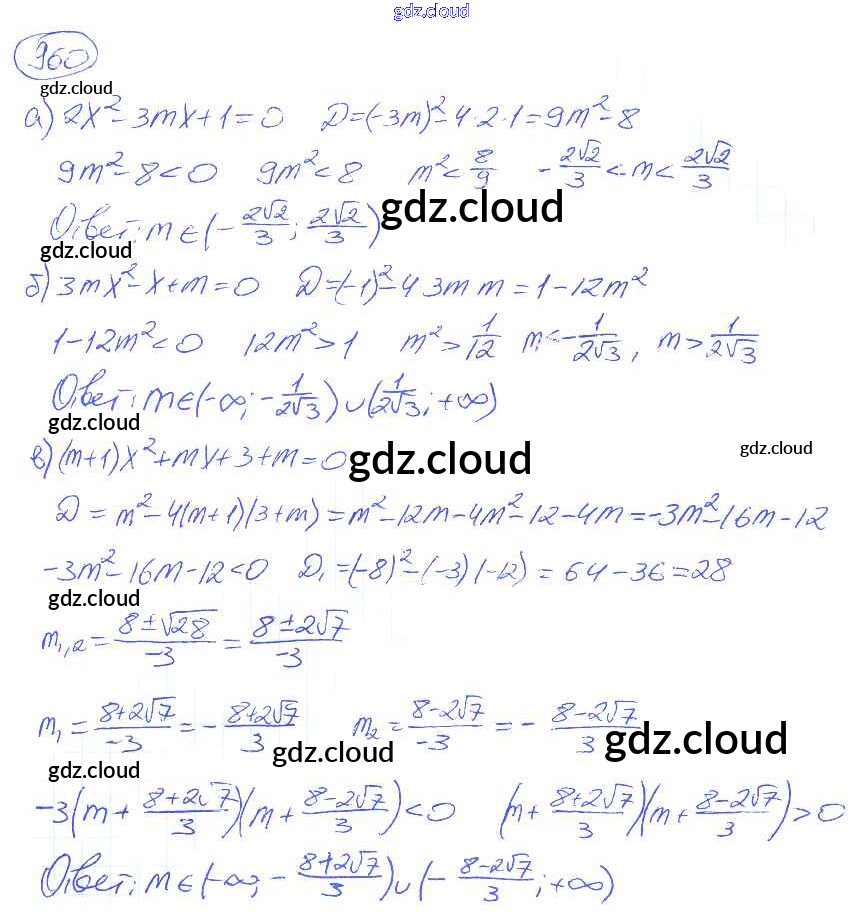 gdz.cloud
960
gdz.cloud
а) 2x² - 3mx + 1 = 0   D = (-3m)² - 4·2·1 = 9m² - 8
9m² - 8 < 0   9m² < 8   m² < 8/9   -2√2/3 < m < 2√2/3
gdz.cloud
Ответ: m ∈ (-2√2/3; 2√2/3)
gdz.cloud
б) 3mx² - x + m = 0   D = (-1)² - 4 3m m = 1 - 12m²
1 - 12m² < 0   12m² > 1   m² > 1/12   m < -1/2√3, m > 1/2√3
Ответ: m ∈ (-∞; -1/2√3) ∪ (1/2√3; +∞)
gdz.cloud
в) (m+1)x² + mx + 3 + m = 0
gdz.cloud
gdz.cloud
D = m² - 4(m+1)(3+m) = m² - 12m - 4m² - 12 - 4m = -3m² - 16m - 12
-3m² - 16m - 12 < 0   D₁ = (-8)² - (-3)(-12) = 64 - 36 = 28
gdz.cloud
m₁,₂ = (8 ± √28)/-3 = (8 ± 2√7)/-3
m₁ = (8+2√7)/-3 = -(8+2√7)/3   m₂ = (8-2√7)/-3 = -(8-2√7)/3
gdz.cloud
gdz.cloud
gdz.cloud
-3(m + (8+2√7)/3)(m + (8-2√7)/3) < 0   (m + (8+2√7)/3)(m + (8-2√7)/3) > 0
Ответ: m ∈ (-∞; -(8+2√7)/3) ∪ (-(8-2√7)/3; +∞)